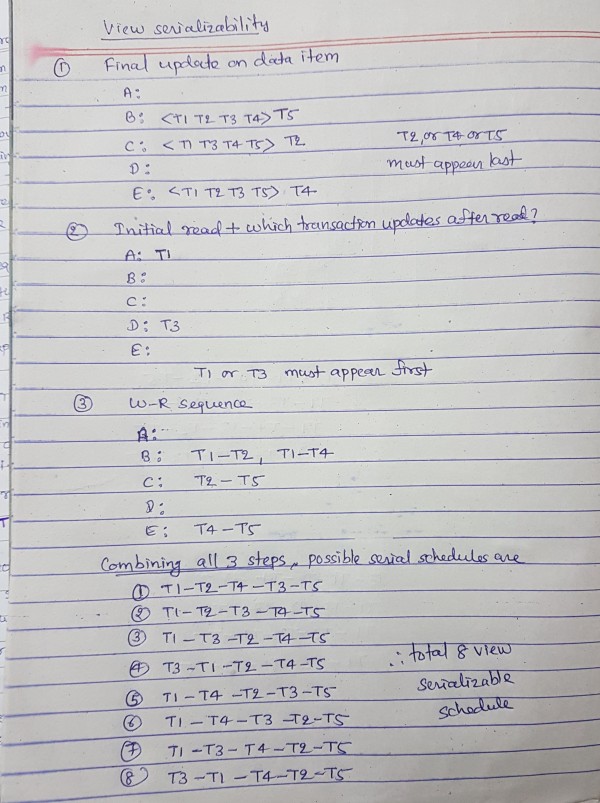 View serializability
① Final update on data item
A:
B: <T1 T2 T3 T4> T5
C: <T1 T3 T4 T5> T2
D:
E: <T1 T2 T3 T5> T4
T2, or T4 or T5
must appear last
② Initial read + which transaction updates after read?
A: T1
B:
C:
D: T3
E:
T1 or T3 must appear first
③ W-R sequence
A:
B: T1-T2, T1-T4
C: T2-T5
D:
E: T4-T5
Combining all 3 steps, possible serial schedules are
① T1-T2-T4-T3-T5
② T1-T2-T3-T4-T5
③ T1-T3-T2-T4-T5
④ T3-T1-T2-T4-T5
⑤ T1-T4-T2-T3-T5
⑥ T1-T4-T3-T2-T5
⑦ T1-T3-T4-T2-T5
⑧ T3-T1-T4-T2-T5
∴ total 8 view
serializable
schedule